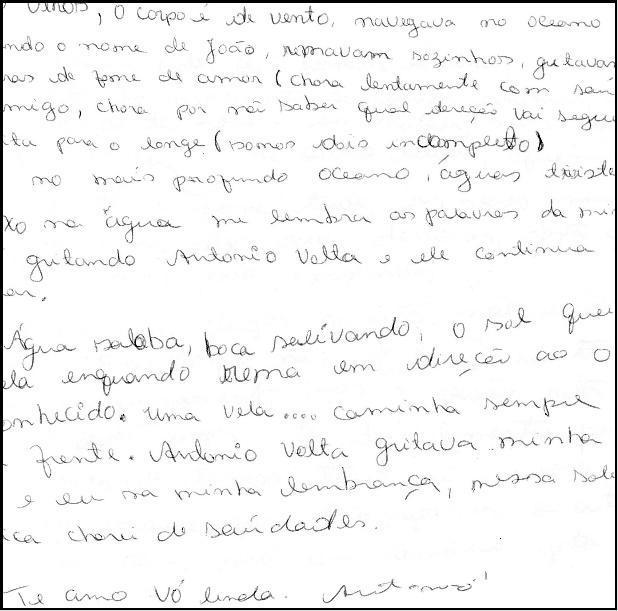 , O corpo é de vento, navegava no oceano
ndo o nome de João, remavam sozinhos, gritavam
ras de fome de amor (chora lentamente com sau
migo, chora por não saber qual direção vai segui
ita para o longe (somos dois incompleto)
no mais profundo oceano, águas triste
xo na água me lembra as palavras da mi
gritando Antonio Volta e ele continua
ar.
Água saloba, boca salivando, o sol quei
ela enquando rema em direção ao O
onhecido. uma vela.... caminha sempre
frente. Antonio Volta gritava minha
e eu na minha lembrança, nessa sale
ica chorei de saúdades.
Te amo vó linda. Antonio